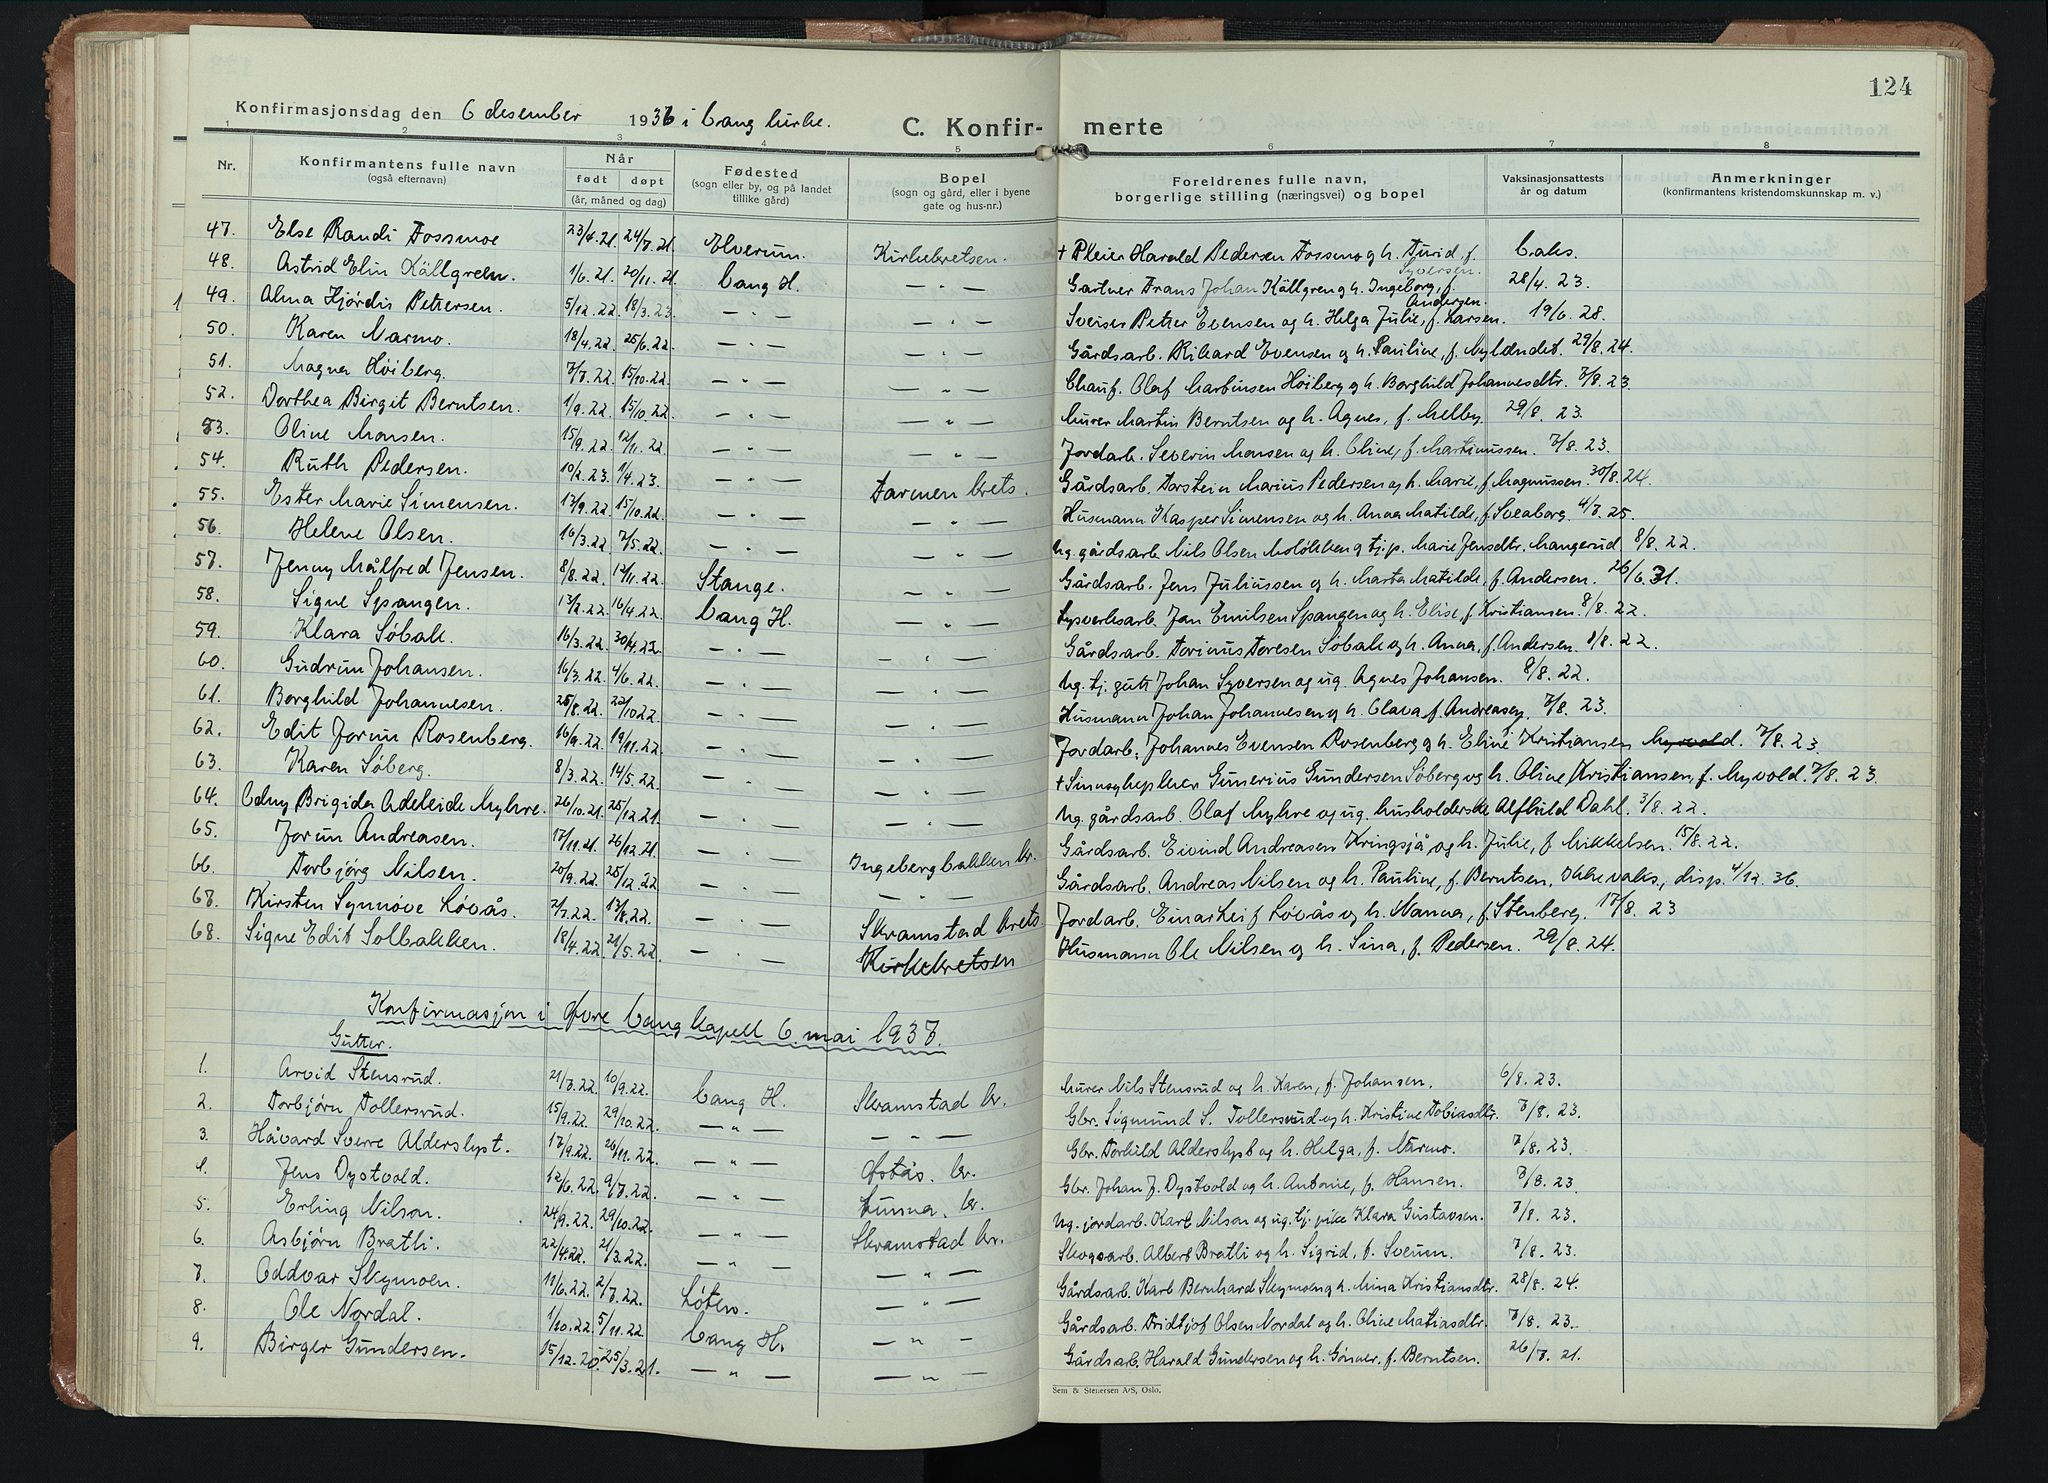 124
Konfirmasjonsdag den 6 desember 1936 i Vang kirke.
C. Konfir- merte
1 2 3 4 5 6 7 8
Nr.
Konfirmantens fulle navn
(også efternavn)
Når
født døpt
(år, måned og dag)
Fødested
(sogn eller by, og på landet
tillike gård)
Bopel
(sogn og gård, eller i byene
gate og hus-nr.)
Foreldrenes fulle navn,
borgerlige stilling (næringsvei) og bopel
Vaksinasjonsattests
år og datum
Anmerkninger
(konfirmantens kristendomskunnskap m. v.)
47. Else Randi Fossmoe 23/4.21. 24/7.21. Elverum. Kirkekretsen. + Pleier Harald Pedersen Fossmo og h. Turid, f. Syversen. Vaks.
48. Astrid Elin Källgreen. 1/6.21. 20/11.21. Vang H. — " — Gartner Frans Johan Källgren og h. Ingeborg, f. Andersen. 28/4.23.
49. Alma Hjórdis Pettersen. 5/12.22. 18/3.23. — " — — " — Sveiser Petter Evensen og h. Helga Julie, f. Larsen. 19/6.28.
50. Karen Narmo. 18/4.22. 25/6.22. — " — — " — Gårdsarb. Rikard Evensen og h. Pauline, f. Nylændet. 29/8.24.
51. Magna Höiberg. 7/7.22. 15/10.22. — " — — " — Chauf. Olaf Martinsen Höiberg og h. Borghild Johannesdtr. 7/8.23.
52. Dorthea Birgit Berntsen. 1/9.22. 15/10.22. — " — — " — Murer Martin Berntsen og h. Agnes, f. Melby. 29/8.23.
53. Oline Monsen. 15/9.22. 12/11.22. — " — — " — Jordarb. Severin Monsen og h. Oline, f. Martinussen. 7/8.23.
54. Ruth Pedersen. 10/2.23. 1/4.23. — " — Farmen krets. Gårdsarb. Torstein Marius Pedersen og h. Marie, f. Magnussen. 30/8.24.
55. Ester Marie Simensen. 13/9.22. 15/10.22. — " — — " — Husmann Kasper Simensen og h. Anna Matilde, f. Sveaborg. 4/7.25.
56. Helene Olsen. 16/3.22. 7/5.22. — " — — " — Ug. gårdsarb. Nils Olsen Moløkken og tj.p. Marie Jensdtr. Mangerud 8/8.22.
57. Jenny Målfred Jensen. 8/8.22. 12/11.22. Stange. — " — Gårdsarb. Jens Juliussen og h. Marta Matilde, f. Andersen. 26/6.31.
58. Signe Spangen. 13/2.22. 16/4.22. Vang H. — " — Lysverksarb. Jan Emilsen Spangen og h. Elise, f. Kristiansen. 8/8.22.
59. Klara Søbakk. 16/3.22. 30/4.22. — " — — " — Gårdsarb. Torinus Toresen Søbakk og h. Anna, f. Andersen. 8/8.22.
60. Gudrun Johansen. 16/3.22. 4/6.22. — " — — " — Ug. tj. gutt Johan Syversen og ug. Agnes Johansen. 8/8.22.
61. Borghild Johannesen. 25/8.22. 22/10.22. — " — — " — Husmann Johan Johannesen og h. Olava, f. Andreasen. 7/8.23.
62. Edit Jorun Rosenberg. 16/9.22. 19/11.22. — " — — " — Jordarb. Johannes Evensen Rosenberg og h. Eline Kristiansen Myrvold. 7/8.23.
63. Karen Søberg. 8/3.22. 14/5.22. — " — — " — + Sinnsykepleier Gunerius Gundersen Søberg og h. Oline Kristiansen, f. Myvold. 7/8.23.
64. Odny Brigida Adeleide Myhre. 26/10.21. 25/12.21. — " — — " — Ug. gårdsarb. Olaf Myhre og ug. husholderske Alfhild Dahl. 3/8.22.
65. Jorun Andreasen. 17/11.21. 26/12.21. — " — Ingebergbakken kr. Gårdsarb. Eivind Andreasen Kringsjå og h. Julie, f. Mikkelsen. 15/8.22.
66. Torbjörg Nilsen. 20/9.22. 25/12.22 — " — — " — Gårdsarb. Andreas Nilsen og h. Pauline, f. Berntsen. Ikke vaks., disp. 4/12.36.
67. Kirsten Synnöve Lövås. 2/7.22. 13/8.22. — " — Skramstad krets. Jordarb. Einar Leif Lövås og h. Nanna, f. Stenberg. 17/8.23
68. Signe Edit Solbakken. 18/4.22. 21/5.22. — " — Kirkekretsen Husmann Ole Nilsen og h. Sina, f. Pedersen. 29/8.24.
Konfirmasjon i Øvre Vang kapell 6. mai 1937.
Gutter.
1. Arvid Stensrud. 21/7.22. 10/9.22. Vang H. Skramstad kr. Murer Nils Stensrud og h. Karen, f. Johansen. 6/8.23.
2. Torbjörn Tollersrud. 15/9.22. 29/10.22. — " — — " — Gbr. Sigmund S. Tollersrud og h. Kristine Tobiasdtr. 7/8.23.
3. Håvard Sverre Alderslyst. 17/9.22. 26/11.22. — " — Østås. kr. Gbr. Torhild Alderslyst og h. Helga, f. Narmo. 7/8.23.
4. Jens Dystvold. 12/6.22. 9/7.22. — " — Lunna. kr. Gbr. Johan J. Dystvold og h. Antonie, f. Hansen. 8/8.23.
5. Erling Nilson. 24/9.22. 29/10.22. — " — Skramstad kr. Ug. jordarb. Karl Nilson og ug. tj. pike Klara Gustavsen. 7/8.23.
6. Asbjörn Bratli. 22/4.22. 21/3.22. — " — — " — Skogsarb. Albert Bratli og h. Sigrid, f. Sveum. 7/8.23.
7. Oddvar Skymoen. 11/6.22. 2/7.22. Løten. — " — Gårdsarb. Karl Bernhard Skymoen og h. Mina Kristiansdtr. 28/8.24.
8. Ole Nordal. 1/10.22. 5/11.22. Vang H. — " — Gårdsarb. Fridtjof Olsen Nordal og h. Oline Matiasdtr. 7/8.23.
9. Birger Gundersen. 15/12.20. 25/3.21. — " — — " — Gårdsarb. Harald Gundersen og h. Gönner, f. Berntsen. 26/7.21.
Sem & Stenersen A/S, Oslo.